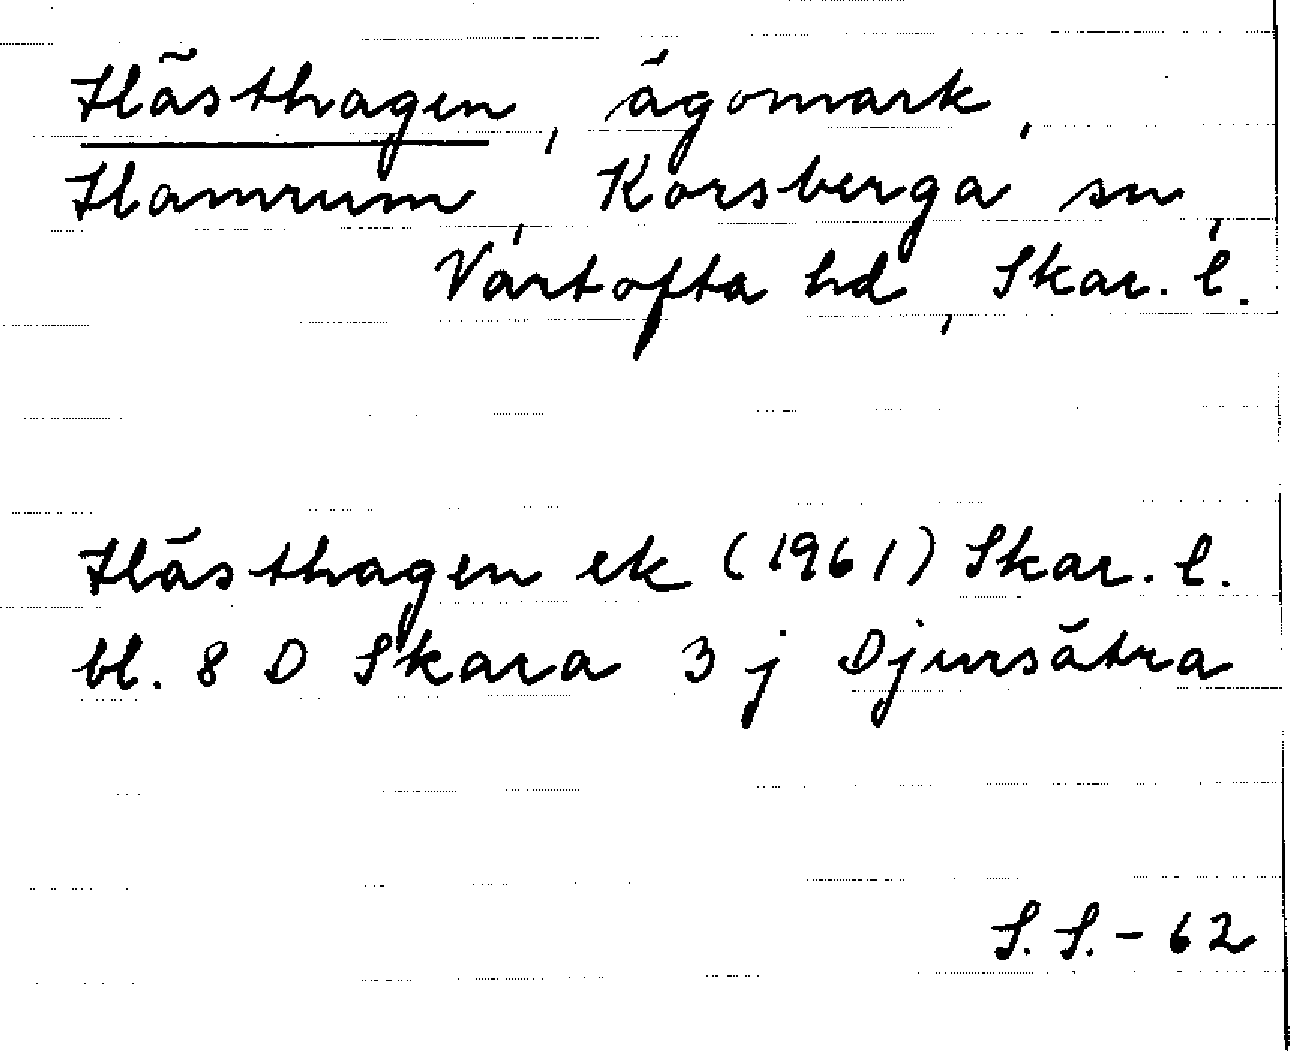 Hästhagen, ägomark,
Hamrum, Korsberga sn,
Vartofta hd, Skar. l.
Hästhagen ek (1961) Skar. l.
bl. 8 D Skara 3 j Djursätra
S. S. - 62